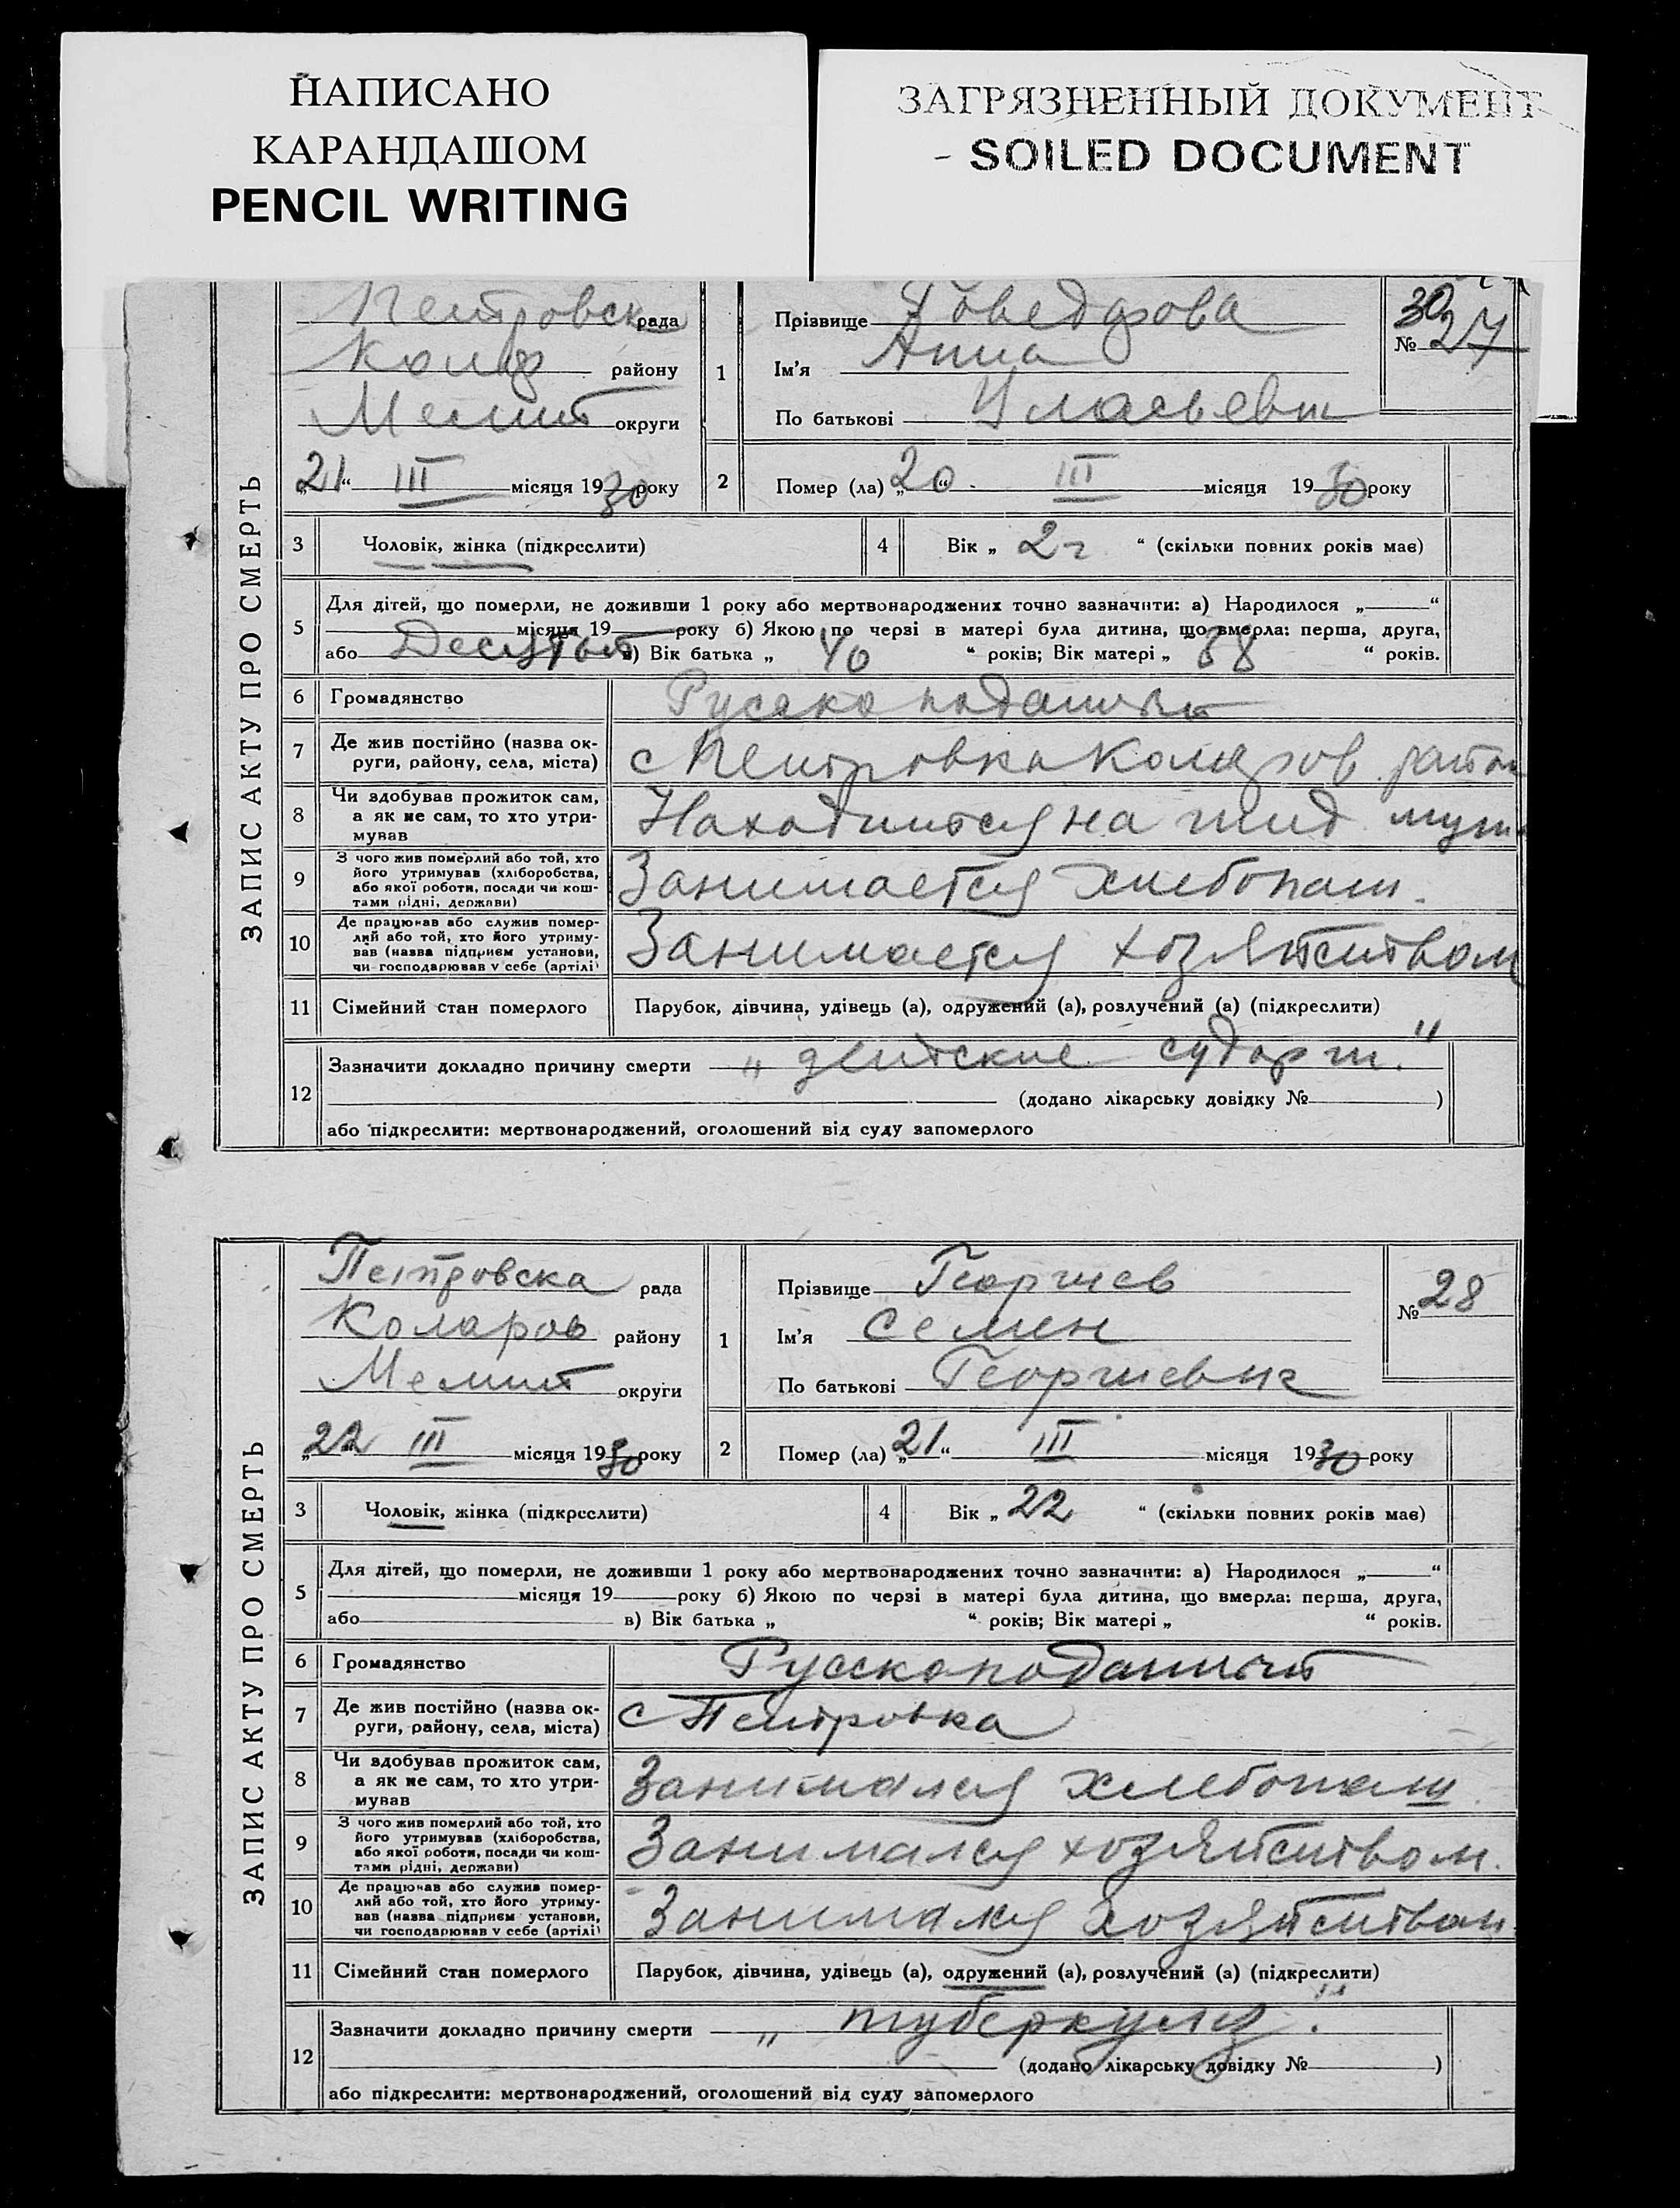 НАПИСАНО
КАРАНДАШОМ
PENCIL WRITING
ЗАГРЯЗНЕННЫЙ ДОКУМЕНТ
- SOILED DOCUMENT
ЗАПИС АКТУ ПРО СМЕРТЬ
Петровска рада
району
Мелит округи
„21“ III місяця 1930 року
1
Прізвище
Ім'я Анна
По батькові
30
№ 27
2
Помер (ла) „20“ III місяця 1930 року
3 Чоловік, жінка (підкреслити)
4 Вік „ 2 г “ (скільки повних років має)
5 Для дітей, що померли, не доживши 1 року або мертвонароджених точно зазначити: а) Народилося „ “
місяця 19 року б) Якою по черзі в матері була дитина, що вмерла: перша, друга,
або в) Вік батька „ 40 “ років; Вік матері „ 38 “ років.
6 Громадянство
7 Де жив постійно (назва ок-
руги, району, села, міста)
с Петровка Коларов район
8 Чи здобував прожиток сам,
а як не сам, то хто утри-
мував
Находится на
9 З чого жив померлий або той, хто
його утримував (хліборобства,
або якої роботи, посади чи кош-
тами рідні, держави)
Занимается хлебопаш.
10 Де працював або служив помер-
лий або той, хто його утриму-
вав (назва підприєм установи,
чи господарював у себе (артілі)
Занимается хозяйством
11 Сімейний стан померлого Парубок, дівчина, удівець (а), одружений (а), розлучений (а) (підкреслити)
12 Зазначити докладно причину смерти „ детские судорги. "
(додано лікарську довідку № )
або підкреслити: мертвонароджений, оголошений від суду запомерлого
ЗАПИС АКТУ ПРО СМЕРТЬ
Петровска рада
Коларов району
Мелит округи
„22 III місяця 1930 року
1
Прізвище Георгиев
Ім'я Семен
По батькові Георгиевич
№ 28
2
Помер (ла) „21“ III місяця 1930 року
3 Чоловік, жінка (підкреслити)
4 Вік „ 22 “ (скільки повних років має)
5 Для дітей, що померли, не доживши 1 року або мертвонароджених точно зазначити: а) Народилося „ “
місяця 19 року б) Якою по черзі в матері була дитина, що вмерла: перша, друга,
або в) Вік батька „ “ років; Вік матері „ “ років.
6 Громадянство Русскоподаный
7 Де жив постійно (назва ок-
руги, району, села, міста)
с Петровка
8 Чи здобував прожиток сам,
а як не сам, то хто утри-
мував
Занимался хлебопаш.
9 З чого жив померлий або той, хто
його утримував (хліборобства,
або якої роботи, посади чи кош-
тами рідні, держави)
Занимался хозяйством.
10 Де працював або служив помер-
лий або той, хто його утриму-
вав (назва підприєм установи,
чи господарював у себе (артілі)
Занимался хозяйством.
11 Сімейний стан померлого Парубок, дівчина, удівець (а), одружений (а), розлучений (а) (підкреслити)
12 Зазначити докладно причину смерти „ туберкулез. "
(додано лікарську довідку № )
або підкреслити: мертвонароджений, оголошений від суду запомерлого